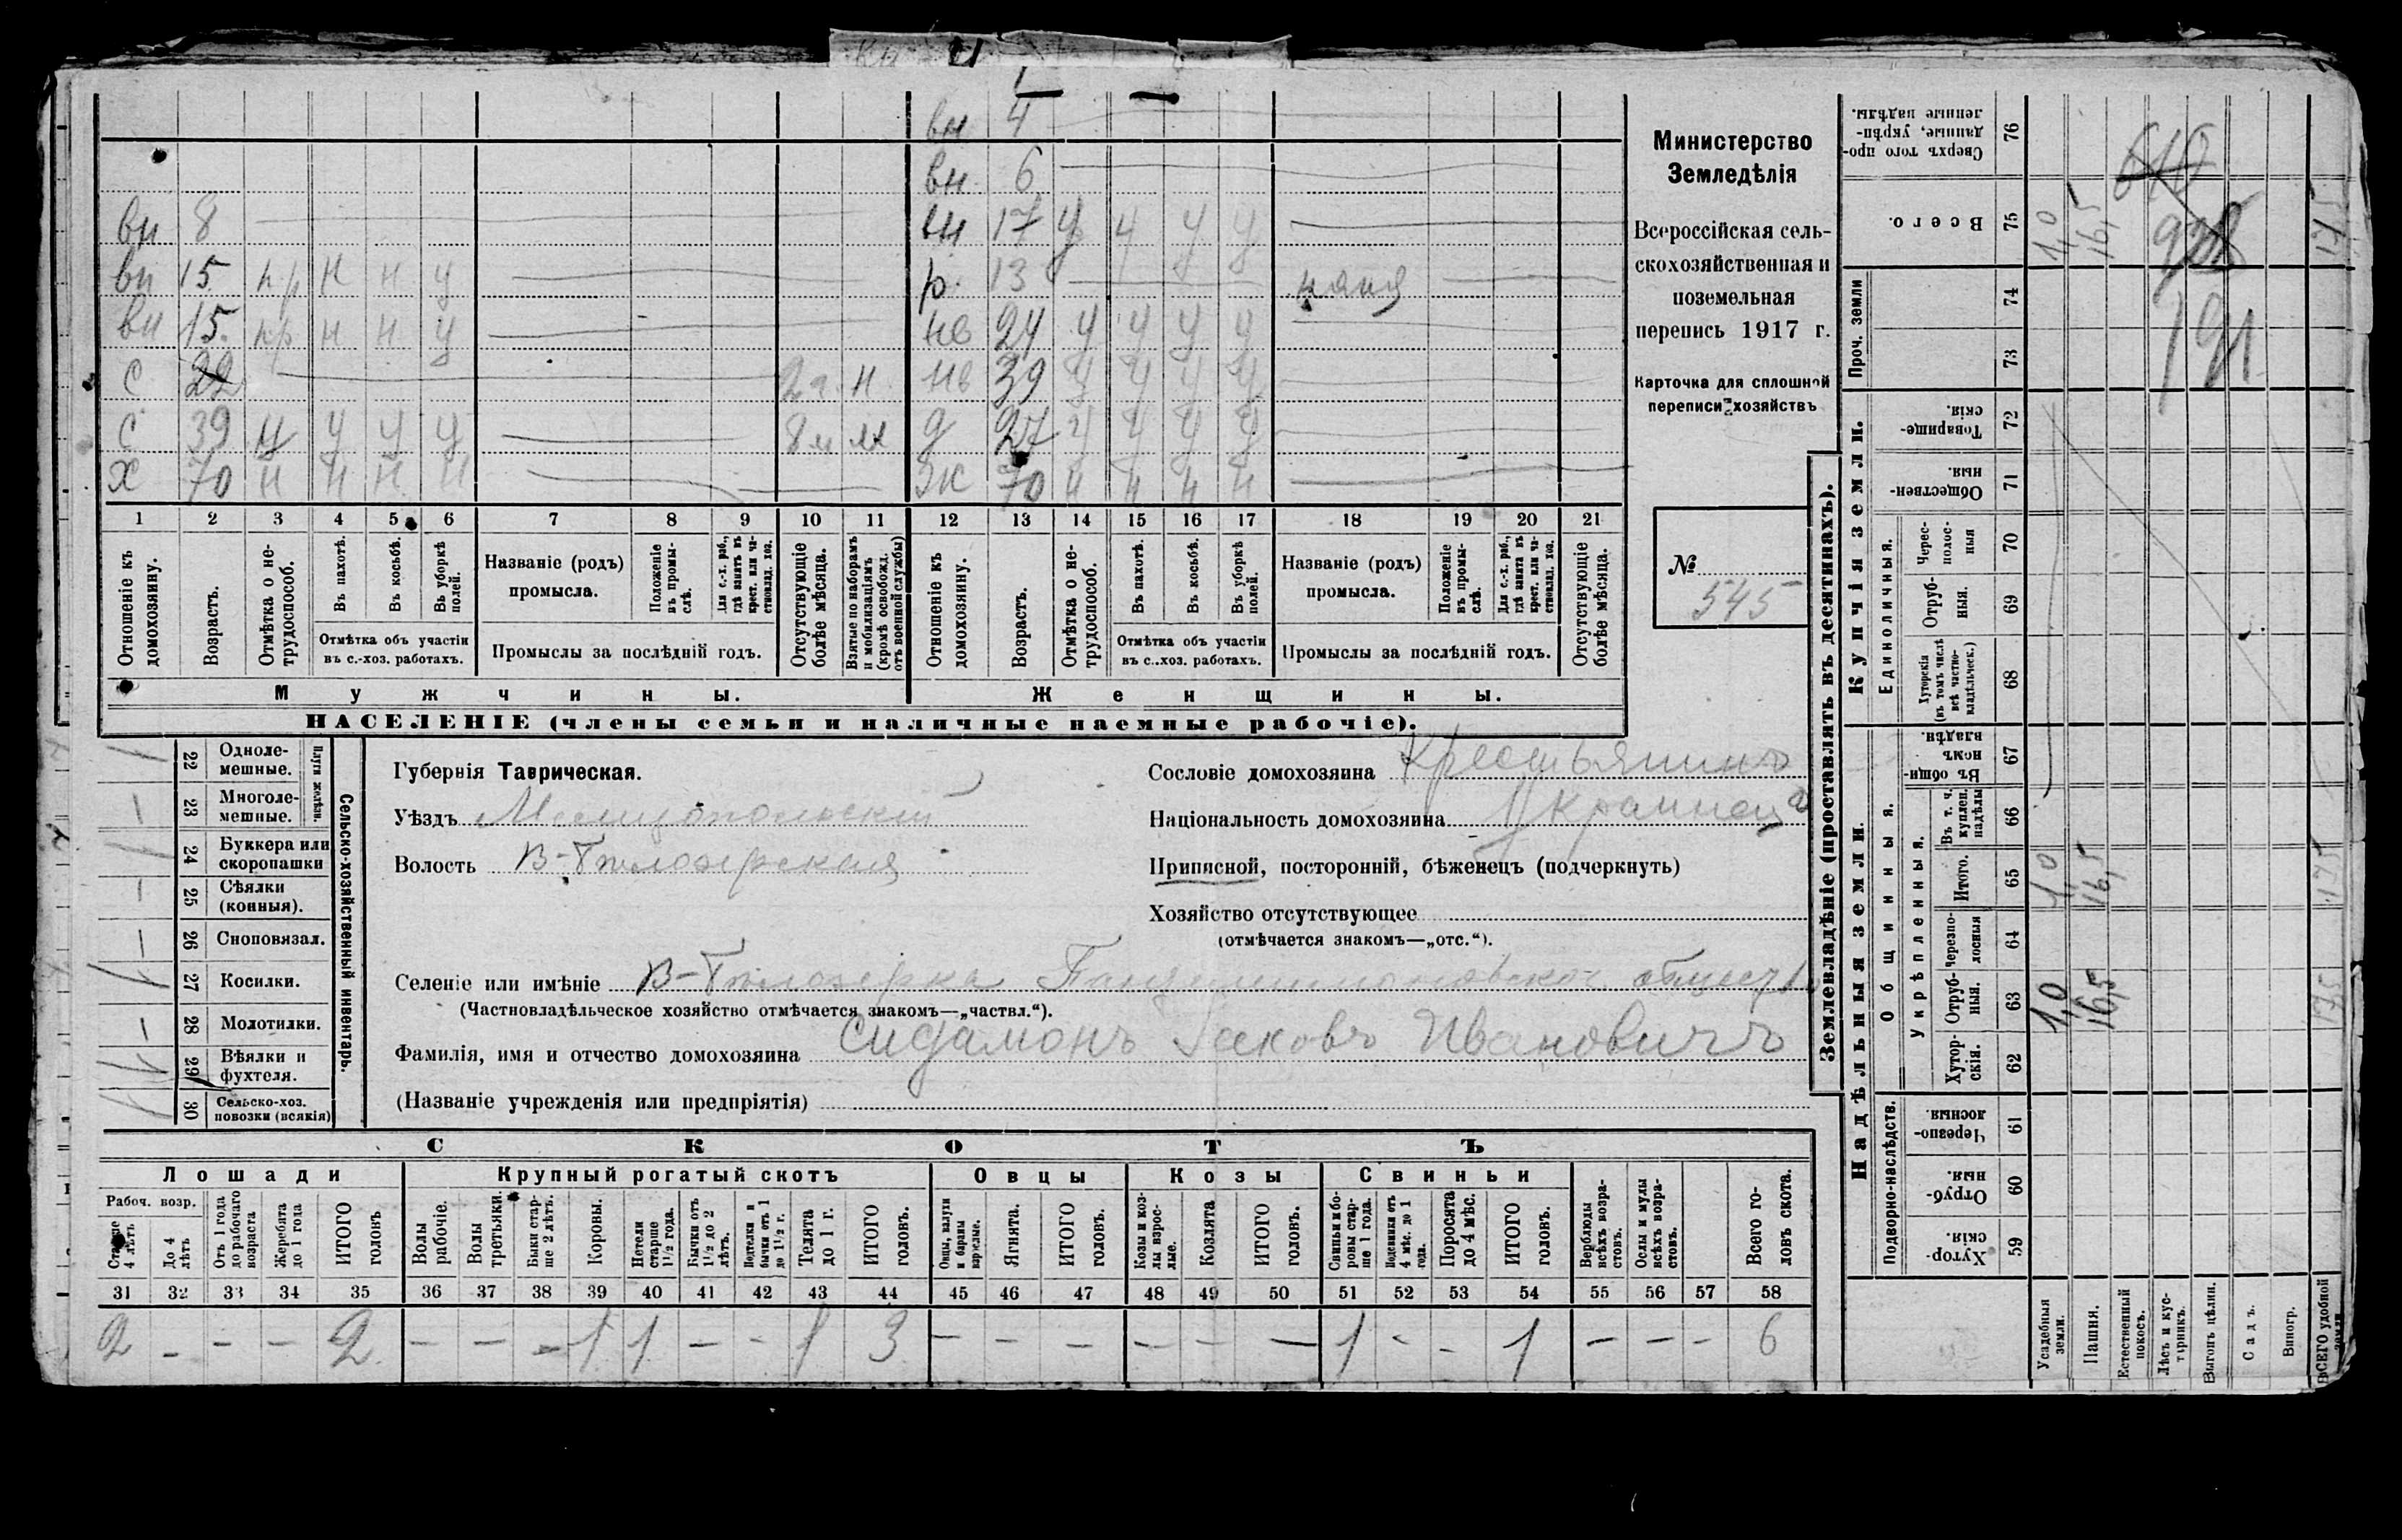 вн 4
вн 6
вн 8 вн 17 у у у у
вн 15 н н у р. 13 няня
вн 15. н н у нв 24 у у у у
с 22 2 г. н нв 39 у у у у
с 39 у у у у 8 м д 27 у у у у
Х 70 н н н н ж 70 н н н н
1 2 3 4 5 6 7 8 9 10 11 12 13 14 15 16 17 18 19 20 21
Отношеніе къ домохозяину.
Возрастъ.
Отмѣтка о нетрудоспособ.
Въ пахотѣ.
Въ косьбѣ.
Въ уборкѣ полей.
Отмѣтка объ участіи
въ с.-хоз. работахъ.
Названіе (родъ)
промысла.
Положеніе въ промыслѣ.
Для с.-х. раб., гдѣ занятъ въ крест. или частновлад. хоз.
Промыслы за послѣдній годъ.
Отсутствующіе болѣе мѣсяца.
Взятые по наборамъ и мобилизаціямъ (кромѣ освобожд. отъ военной службы)
Отношеніе къ домохозяину.
Возрастъ.
Отмѣтка о нетрудоспособ.
Въ пахотѣ.
Въ косьбѣ.
Въ уборкѣ полей.
Отмѣтка объ участіи
въ с..хоз. работахъ.
Названіе (родъ)
промысла.
Положеніе въ промыслѣ.
Для с.-х. раб., гдѣ занята въ крест. или частновлад. хоз.
Промыслы за послѣдній годъ.
Отсутствующіе болѣе мѣсяца.
Мужчины. Женщины.
НАСЕЛЕНІЕ (члены семьи и наличные наемные рабочіе).
Министерство
Земледѣлія
Всероссійская сель-
скохозяйственная и
поземельная
перепись 1917 г.
Карточка для сплошной
переписи хозяйствъ
№
545
22 Одноле-
мешные.
23 Многоле-
мешные.
Плуги желѣзн.
24 Буккера или
скоропашки
25 Сѣялки
(конныя).
26 Сноповязал.
27 Косилки.
28 Молотилки.
29 Вѣялки и
фухтеля.
30 Сельско-хоз.
повозки (всякія)
Сельско-хозяйственный инвентарь.
Губернія Таврическая.
Уѣздъ Мелитопольскій
Волость В-Бѣлозерская
Сословіе домохозяина Крестьянинъ
Національность домохозяина Украинецъ
Приписной, посторонній, бѣженецъ (подчеркнуть)
Хозяйство отсутствующее
(отмѣчается знакомъ—„отс.“).
Селеніе или имѣніе В-Бѣлозерка
(Частновладѣльческое хозяйство отмѣчается знакомъ—„частвл.“).
Фамилія, имя и отчество домохозяина Сидамонъ Яковъ Ивановичъ
(Названіе учрежденія или предпріятія)
СКОТЪ
Лошади Крупный рогатый скотъ Овцы Козы Свиньи
Рабоч. возр.
Старше 4 лѣтъ
До 4 лѣтъ
Отъ 1 года до рабочаго возраста
Жеребята до 1 года
ИТОГО головъ
Волы рабочіе.
Волы третьяки.
Быки старше 2 лѣтъ.
Коровы.
Нетели старше 1½ года.
Бычки отъ 1½ до 2 лѣтъ.
Подтелки и бычки отъ 1 до 1½ г.
Телята до 1 г.
ИТОГО головъ.
Овцы, валухи и бараны взрослые.
Ягнята.
ИТОГО головъ.
Козы и козлы взрослые.
Козлята
ИТОГО головъ.
Свиньи и боровы старше 1 года.
Подсвинки отъ 4 мѣс. до 1 года.
Поросята до 4 мѣс.
ИТОГО головъ.
Верблюды всѣхъ возрастовъ.
Ослы и мулы всѣхъ возрастовъ.
Всего головъ скота.
31 32 33 34 35 36 37 38 39 40 41 42 43 44 45 46 47 48 49 50 51 52 53 54 55 56 57 58
2 - - - 2 - - - 1 1 - - 1 3 - - - - - - 1 - - 1 - - - 6
Землевладѣніе (проставлять въ десятинахъ).
Купчія земли.
Надѣльныя земли.
Сверхъ того проданные, укрѣпленные надѣлы. 76
Всего. 75
Проч. земли 74 73
Товарищескія. 72
Общественныя. 71
Единоличныя.
Чересполосныя 70
Отрубныя. 69
Хуторскія (въ томъ числѣ всѣ частновладѣльческ.) 68
Общинныя.
Въ общинномъ владѣн. 67
Укрѣпленныя.
Въ т. ч. куплен. надѣлы 66
Итого. 65
Черезполосныя 64
Отрубныя. 63
Хуторскія. 62
Подворно-наслѣдств.
Черезполосныя. 61
Отрубныя. 60
Хуторскія. 59
Усадебныя земли.
Пашня.
Естественный покосъ.
Лѣсъ и кустарникъ.
Выгонъ цѣлин.
Садъ.
Виногр.
ВСЕГО удобной земли
1,0 16,5 17,5
1,0 16,5 17,5
1,0 16,5 17,5
191